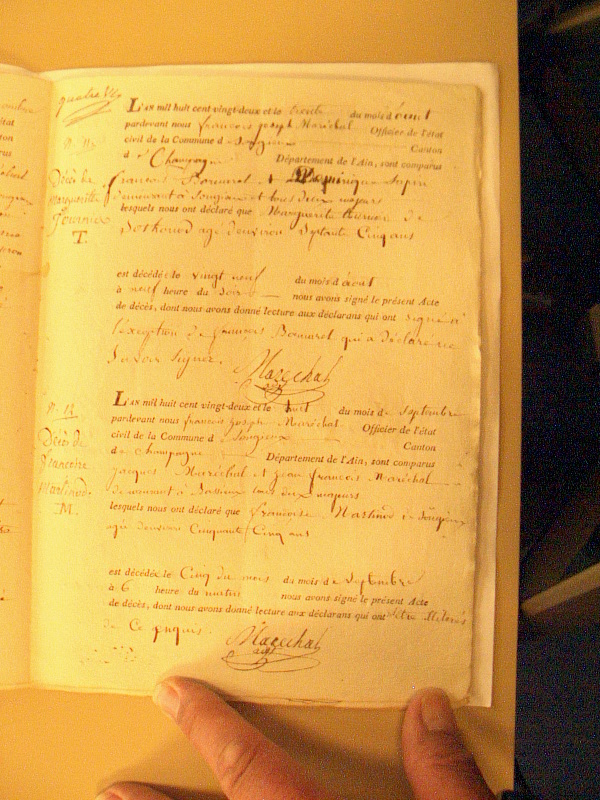 N. 11.
Décès de
Marguerite
Fournier
T.
L'AN mil huit cent vingt-deux et le trente du mois d'aout
pardevant nous françois joseph Maréchal Officier de l'état
civil de la Commune de Songieux Canton
de Champagne Département de l'Ain, sont comparus
françois et Dominique
demeurant à Songieux et tous deux majeurs
lesquels nous ont déclaré que Marguerite de
agé denviron Septante Cinq ans
est décédée le vingt neuf du mois d'aout
à neuf heure du Soir nous avons signé le présent Acte
de décès, dont nous avons donné lecture aux déclarans qui ont signé à
l'exception de françois qui a déclaré ne
Savoir Signer.
Maréchal
N. 12
Décès de
françoise
Martinod
M.
L'AN mil huit cent vingt-deux et le huit du mois de Septembre
pardevant nous françois joseph Maréchal Officier de l'état
civil de la Commune de Songieux Canton
de Champagne Département de l'Ain, sont comparus
jacques Maréchal et jean françois Maréchal
demeurant à tous deux majeurs
lesquels nous ont déclaré que françoise Martinod de Songieux
agé denviron Cinquante Cinq ans
est décédée le Cinq du mois du mois de Septembre
à 6 heure du matin nous avons signé le présent Acte
de décès, dont nous avons donné lecture aux déclarans qui ont
de Ce enquis.
Maréchal